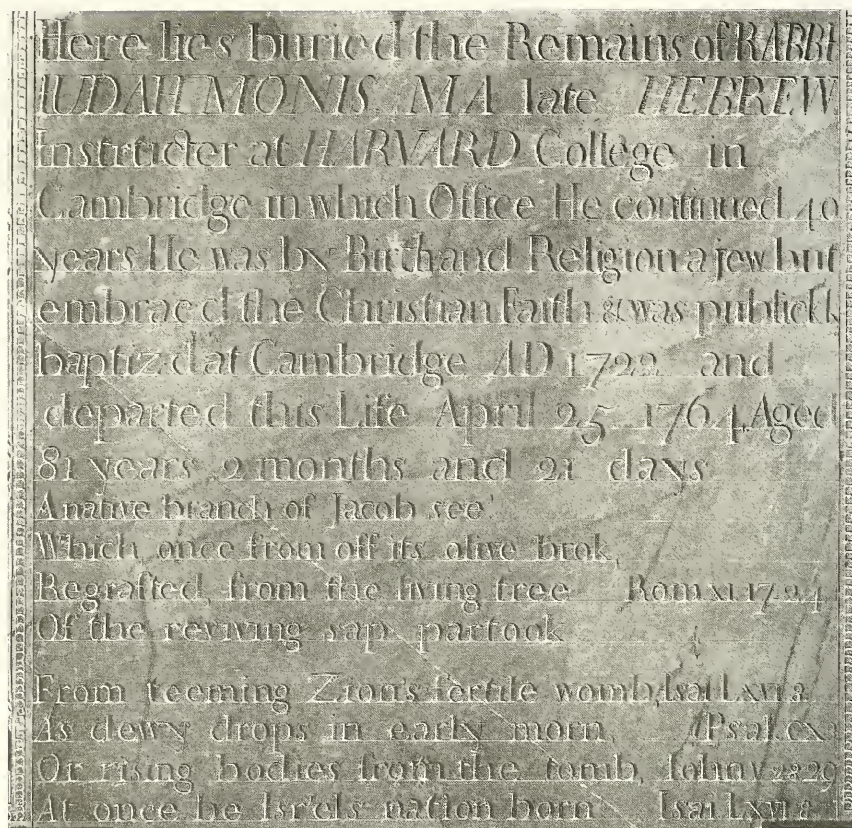 Here lies buried the Remains of RABBI
IUDAH MONIS MA late HEBREW
Instructer at HARVARD College in
Cambridge in which Office He continued 40
years He was by Birth and Religion a jew but
embrac'd the Christian Faith & was publickly
baptiz'd at Cambridge AD 1722 and
departed this Life April 25 1764, Aged
81 years 2 months and 21 days
A native branch of Jacob see!
Which once from off its olive brok,
Regrafted, from the living tree Rom XI. 17. 24
Of the reviving sap partook
From teeming Zion's fertile womb, Isai LXVI 8
As dewy drops in early morn, Psal. CX
Or rising bodies from the tomb, John V 28 29
At once be Isr'els nation born Isai LXVI 8